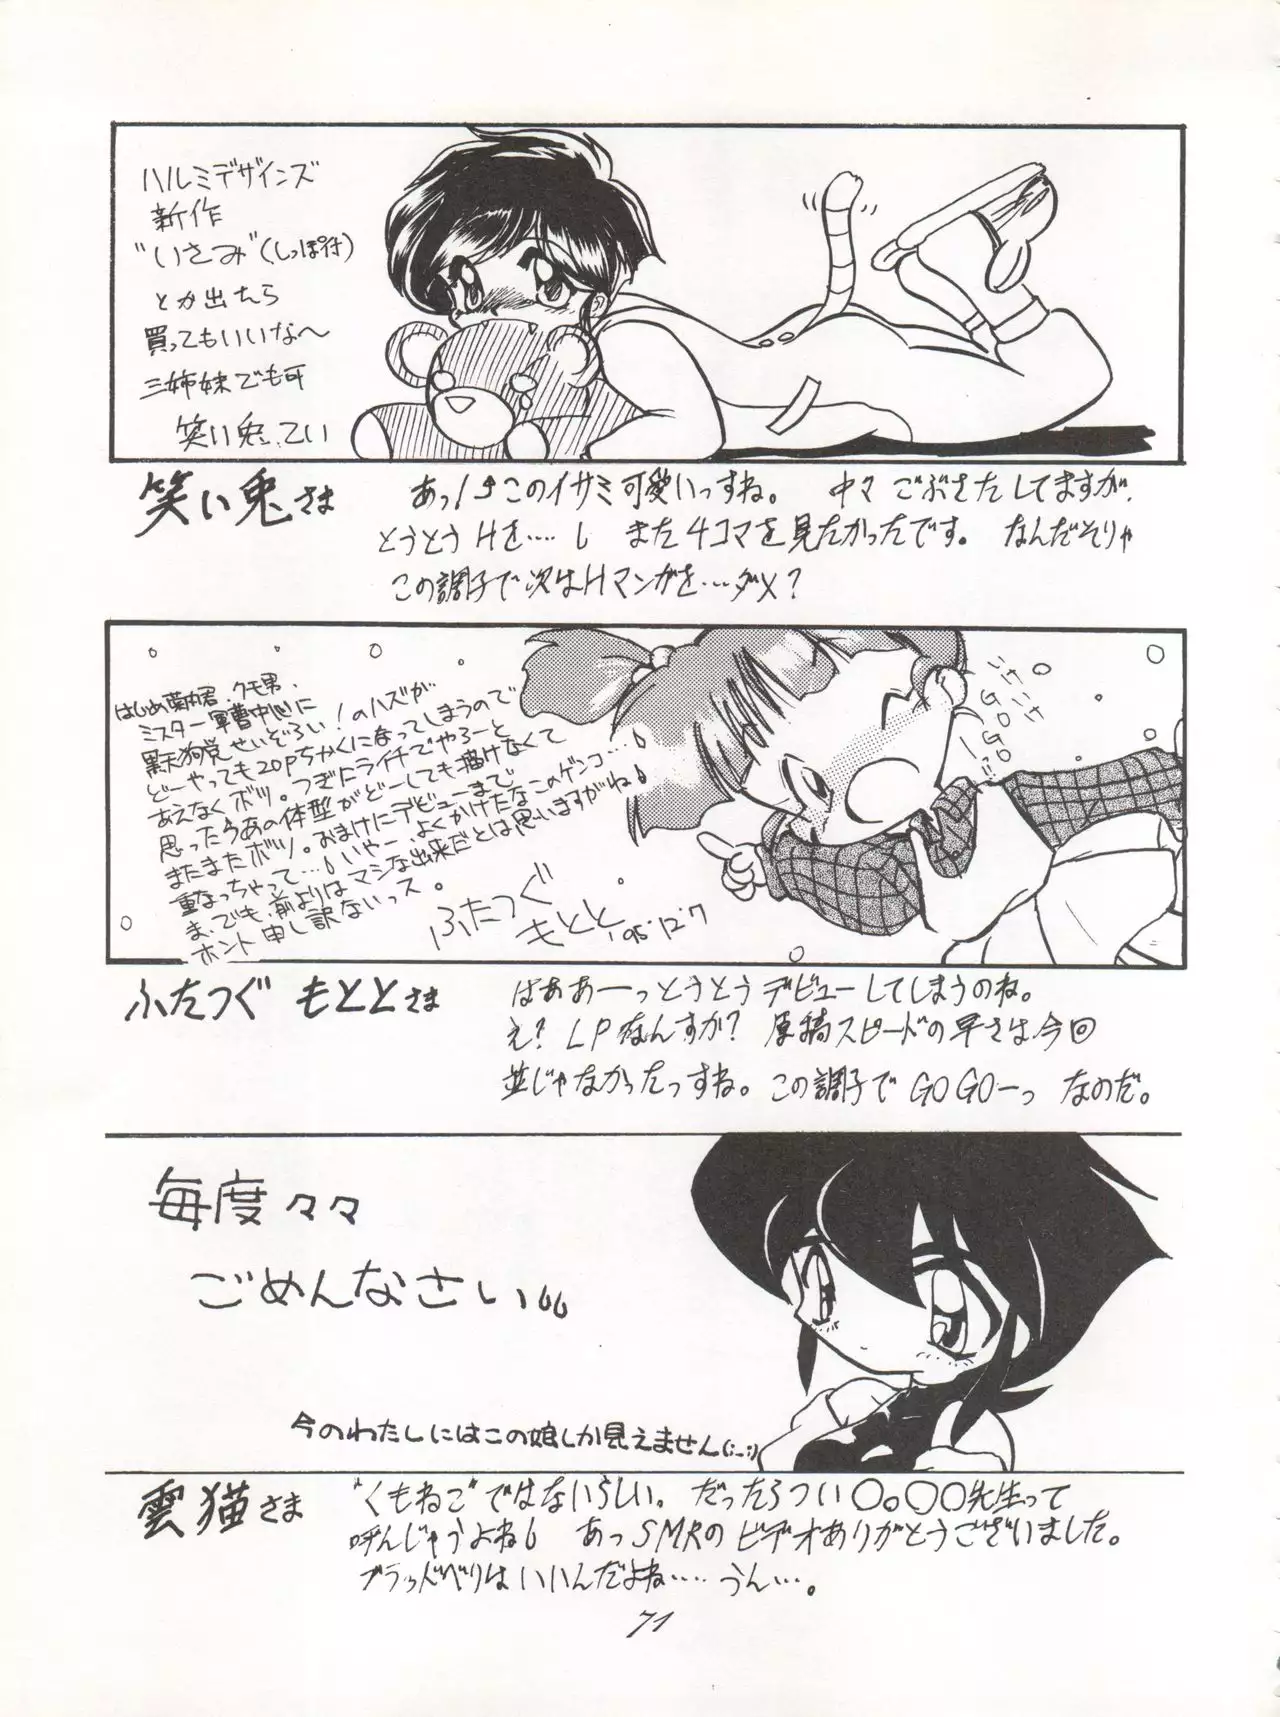 ハルミデザインズ
新作
"いさみ"(しっぽ付)
とか出たら
買ってもいいな〜
三姉妹でも可
笑い兎
笑い兎さま
あっ!このイサミ可愛いっすね。 中々ごぶさたしてますが、
とうとうHを…… また4コマを見たかったです。 なんだそりゃ
この調子で次はHマンガを…ダメ?
はじめ 君、クモ男、
ミスター軍曹中心に
黒天狗党せいぞろい!のハズが
どーやっても20Pちかくになってしまうので
あえなくボツ。つぎにライチでやろーと
思ったらあの体型がどーしても描けなくて
またまたボツ。おまけにデビューまで
重なっちゃって…いやーよくかけたなこのゲンコ…
ま、でも、前よりはマシな出来だとは思いますがね
ホント申し訳ないっス。
ふたつぐ
もとと '95.12.7
こけこけ
GOGOーっ!!
ふたつぐ もととさま
ばああーっとうとうデビューしてしまうのね。
え? LPなんすか? 原稿スピードの早さは、今回
並じゃなかったっすね。この調子でGOGOーっ なのだ。
毎度々々
ごめんなさい
今のわたしにはこの娘しか見えません(;_;)
雲猫さま
"くもねこ"ではないらしい。だったらつい〇。〇〇先生って
呼んじゃうよね あっSMRのビデオありがとうございました。
ブラッドベリはいいんだよね…… うん…。
71